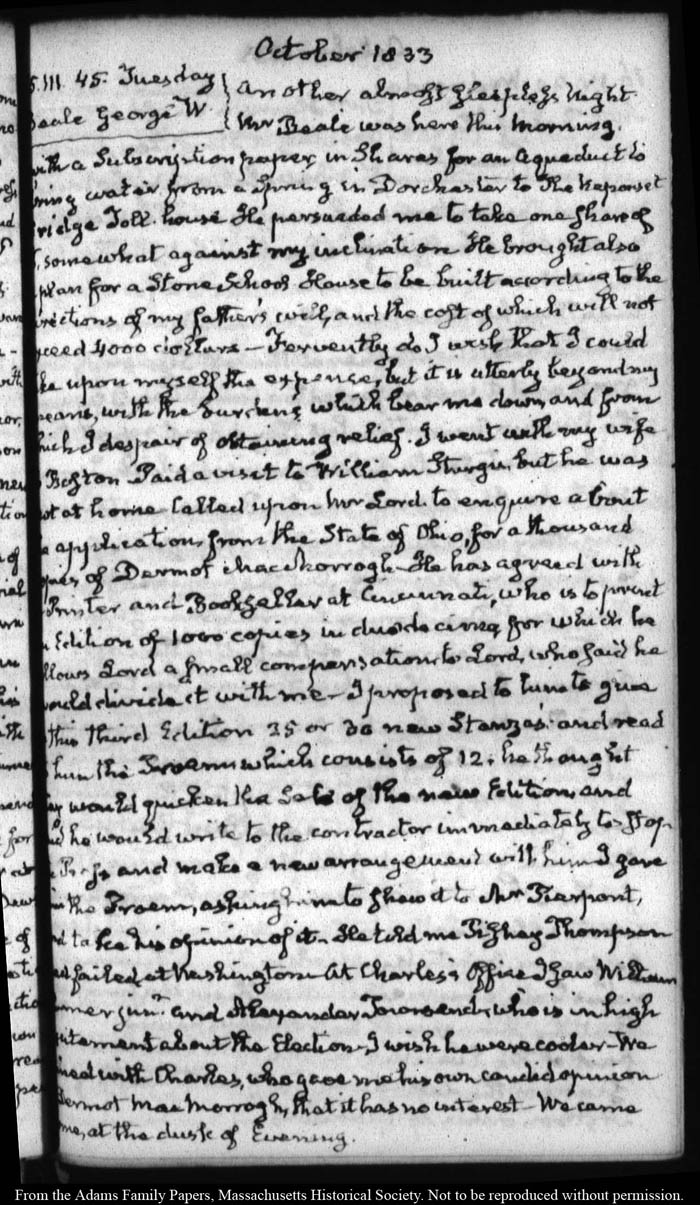 October 1833
5.III. 45. Tuesday
Beale George W.
another almost sleepless Night
Mr Beale was here this Morning.
with a Subscription paper, in Shares for an aqueduct to
bring water from a Spring in Dorchester to the Neponset
Bridge Toll-house He persuaded me to take one share of
somewhat against my inclination He brought also
plan for a Stone School House to be built according to the
directions of my father's will, and the cost of which will not
exceed 4000 dollars — Fervently do I wish that I could
take upon myself the expense, but it is utterly beyond my
means, with the burdens which bear me down, and from
which I despair of obtaining relief. I went with my wife
Boston Paid a visit to William Sturgis, but he was
not at home Called upon Mr Lord to enquire about
application from the State of Ohio, for a thousand
copies of Dermot MacMorrogh — He has agreed with
Printer and Bookseller at Cincinnati, who is to print
Edition of 1000 copies in duodecimo, for which he
allows Lord a small compensation to Lord, who said he
would divide it with me — I proposed to him to give
this third Edition 25 or 30 new Stanzas. and read
him the Proem which consists of 12. he thought
would quicken the Sale of the new Edition, and
said he would write to the contractor immediately to Stop
Press and make a new arrangement with him I gave
him the Proem, asking him to shew it to Mr Pierpont,
and take his opinion of it. He told me Thompson
had failed at Washington. At Charles's Office I saw William
junr. and Alexander Townsend, who is in high
excitement about the Election — I wish he were cooler — We
dined with Charles, who gave me his own candid opinion
Dermot MacMorrogh, that it has no interest — We came
home, at the dusk of Evening.
From the Adams Family Papers, Massachusetts Historical Society. Not to be reproduced without permission.